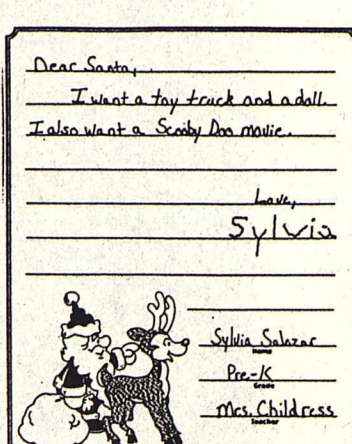 Dear Santa,
I want a toy truck and a doll.
I also want a Scooby Doo movie.
Love,
Sylvia
Sylvia Salazar
Name
Pre-K
Grade
Mrs. Childress
Teacher